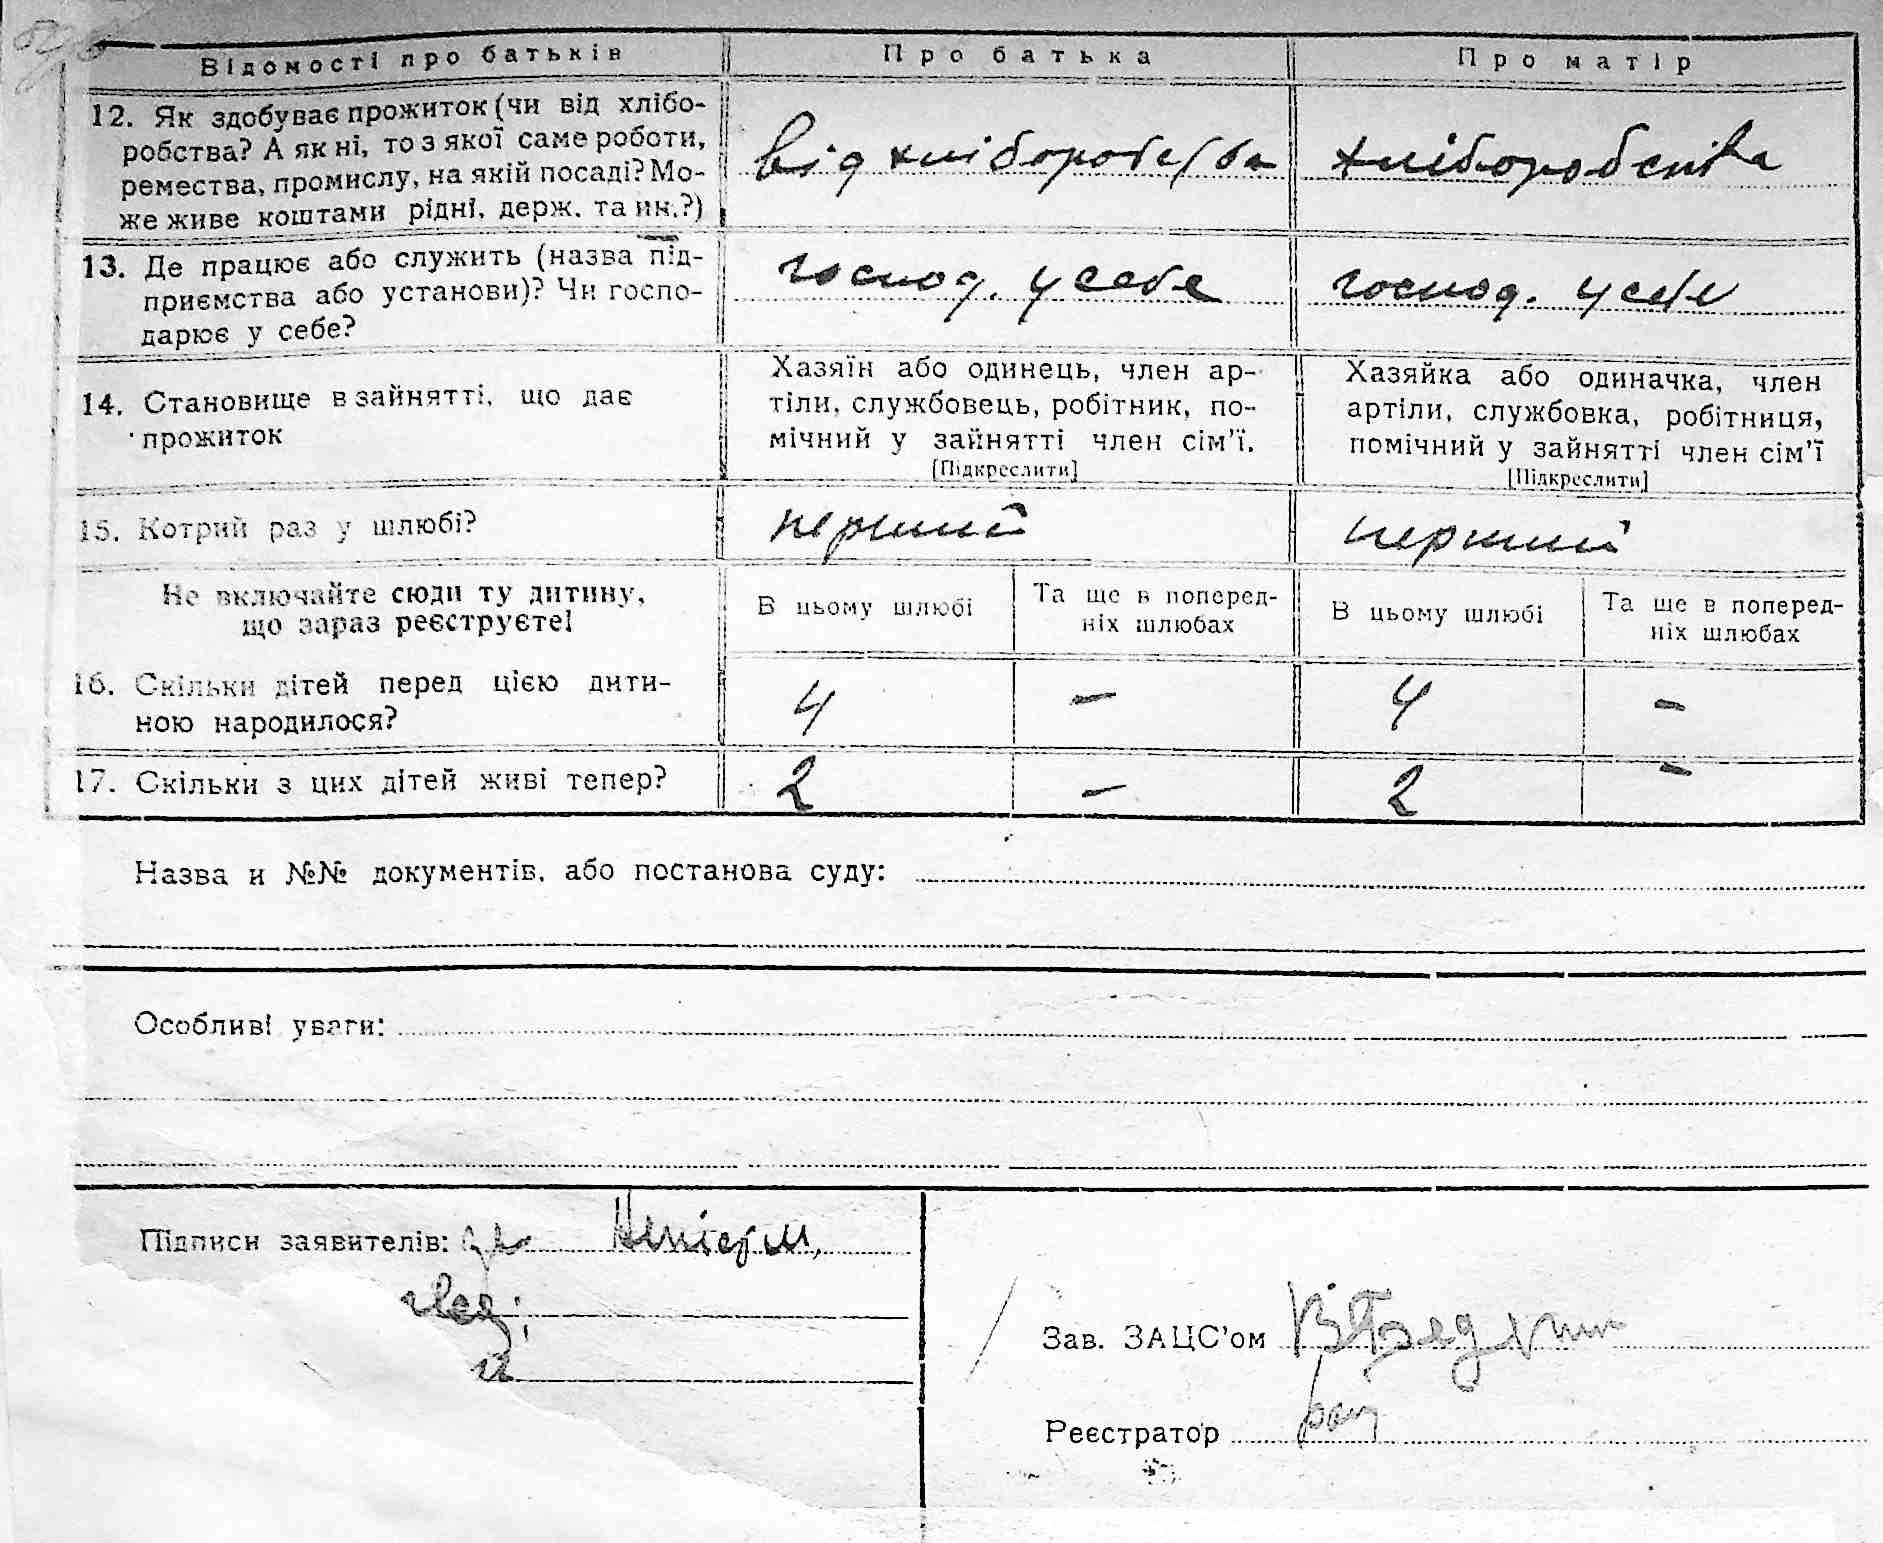 Відомості про батьків Про батька Про матір
12. Як здобуває прожиток (чи від хлібо-
робства? А як ні, то з якої саме роботи,
ремества, промислу, на якій посаді? Мо-
же живе коштами рідні, держ. та ин.?)
від хліборобства хліборобства
13. Де працює або служить (назва під-
приємства або установи)? Чи госпо-
дарює у себе?
господ. у себе господ. у себе
14. Становище в зайнятті, що дає
прожиток
Хазяїн або одинець, член ар-
тіли, службовець, робітник, по-
мічний у зайнятті член сім'ї.
[Підкреслити]
Хазяйка або одиначка, член
артіли, службовка, робітниця,
помічний у зайнятті член сім'ї
[Підкреслити]
15. Котрий раз у шлюбі? перший перший
Не включайте сюди ту дитину,
що зараз реєструєте!
В цьому шлюбі
Та ще в поперед-
ніх шлюбах
В цьому шлюбі
Та ще в поперед-
ніх шлюбах
16. Скільки дітей перед цією дити-
ною народилося?
4 - 4 -
17. Скільки з цих дітей живі тепер? 2 - 2 -
Назва и №№ документів, або постанова суду:
Особливі уваги:
Підписи заявителів:
Зав. ЗАЦС'ом
Реєстратор